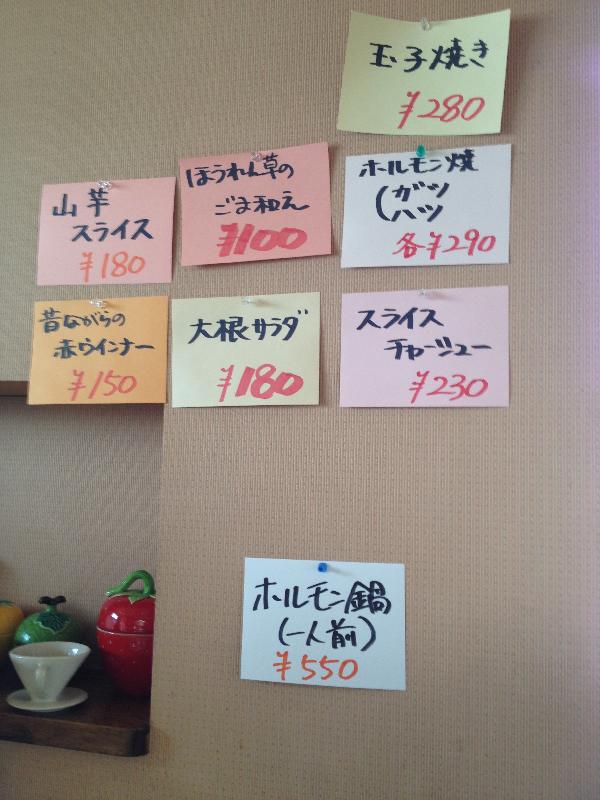 玉子焼き
¥280
ほうれん草の
ごま和え
¥100
ホルモン焼
(ガツ
ハツ
各¥290
山芋
スライス
¥180
昔ながらの
赤ウインナー
¥150
大根サラダ
¥180
スライス
チャーシュー
¥230
ホルモン鍋
(一人前)
¥550